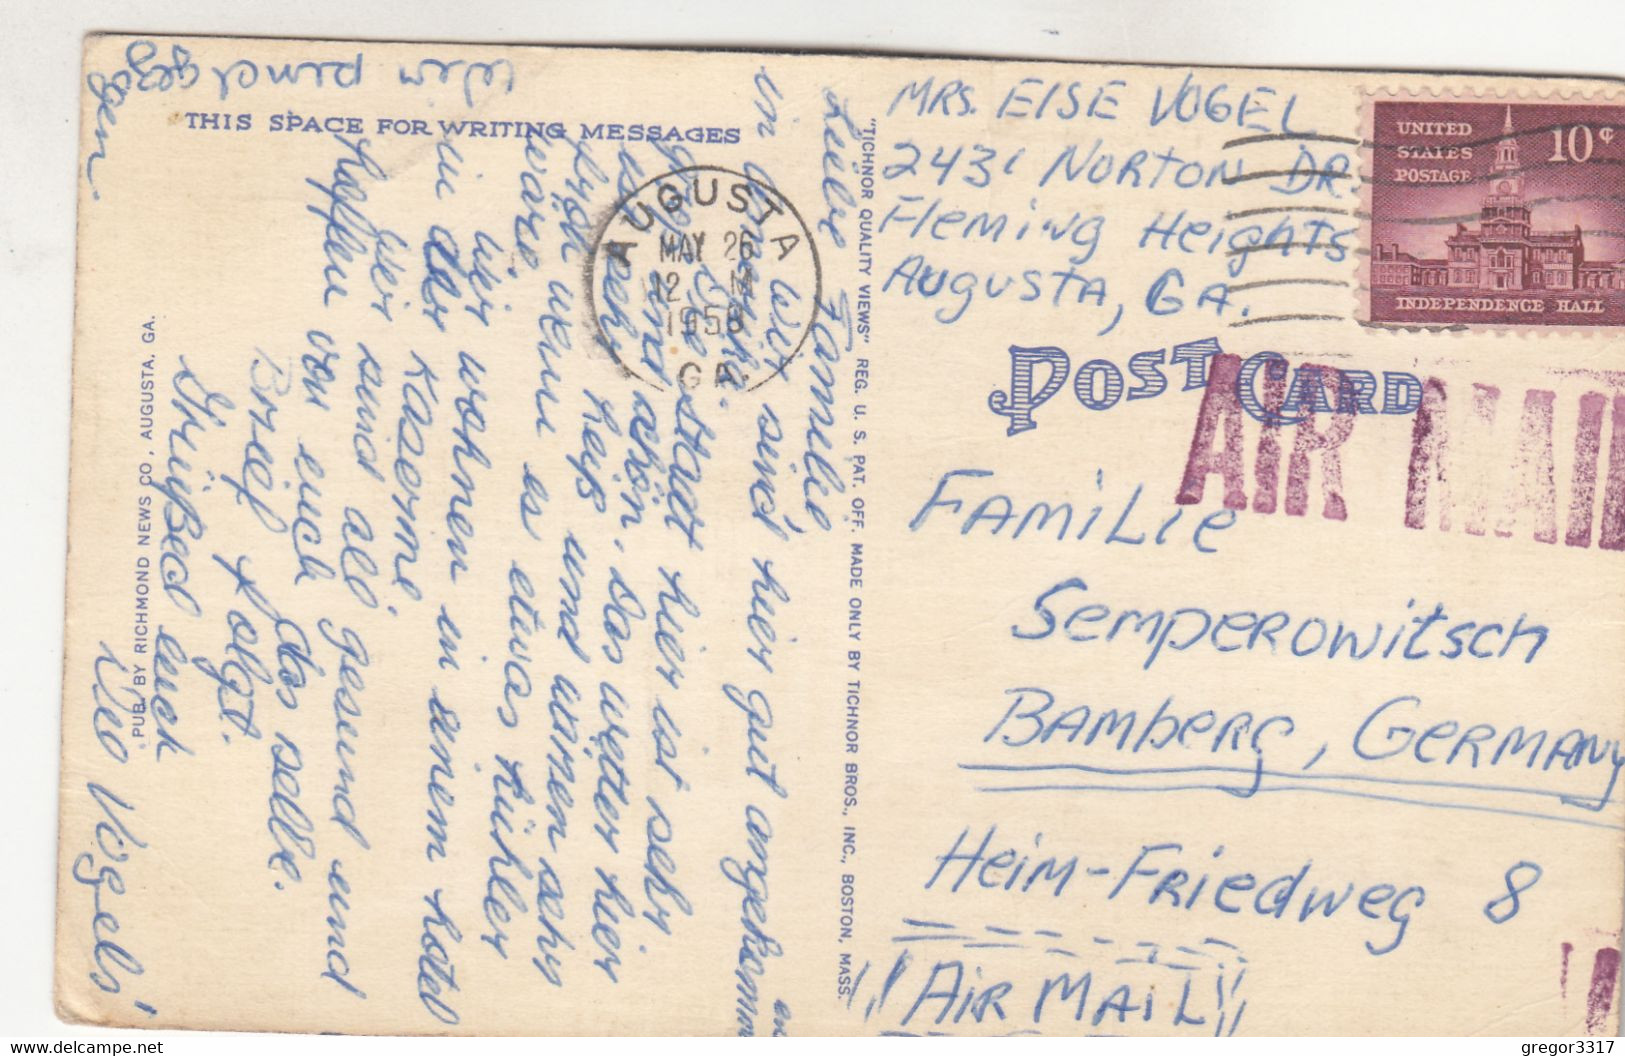 THIS SPACE FOR WRITING MESSAGES
Liebe Familie
Wir sind hier gut angekommen
in Amerika.
Die Stadt hier ist sehr
sehr schön. Das Wetter hier
ist heiß und wir wünschen sehr
wenn es etwas kühler
wäre.
Wir wohnen in einem Hotel
in der Kaserne.
Wir sind all gesund und
hoffen von euch das selbe.
Brief folgt.
Grüßed euch
Vogels'
Wir sind gez
ogen.
PUB. BY RICHMOND NEWS CO., AUGUSTA, GA.
"TICHNOR QUALITY VIEWS" REG. U. S. PAT. OFF. MADE ONLY BY TICHNOR BROS., INC., BOSTON, MASS.
AUGUSTA
MAY 26
12
1958
GA.
MRS. ELSE VOGEL
2431 NORTON DR.
Fleming Heights
Augusta, GA.
UNITED
STATES
POSTAGE
10¢
INDEPENDENCE HALL
POST CARD
AIR MAIL
FAMILIE
Semperowitsch
BAMBERG, GERMANY
Heim-Friedweg 8
AIR MAIL
© www.delcampe.net
gregor3317